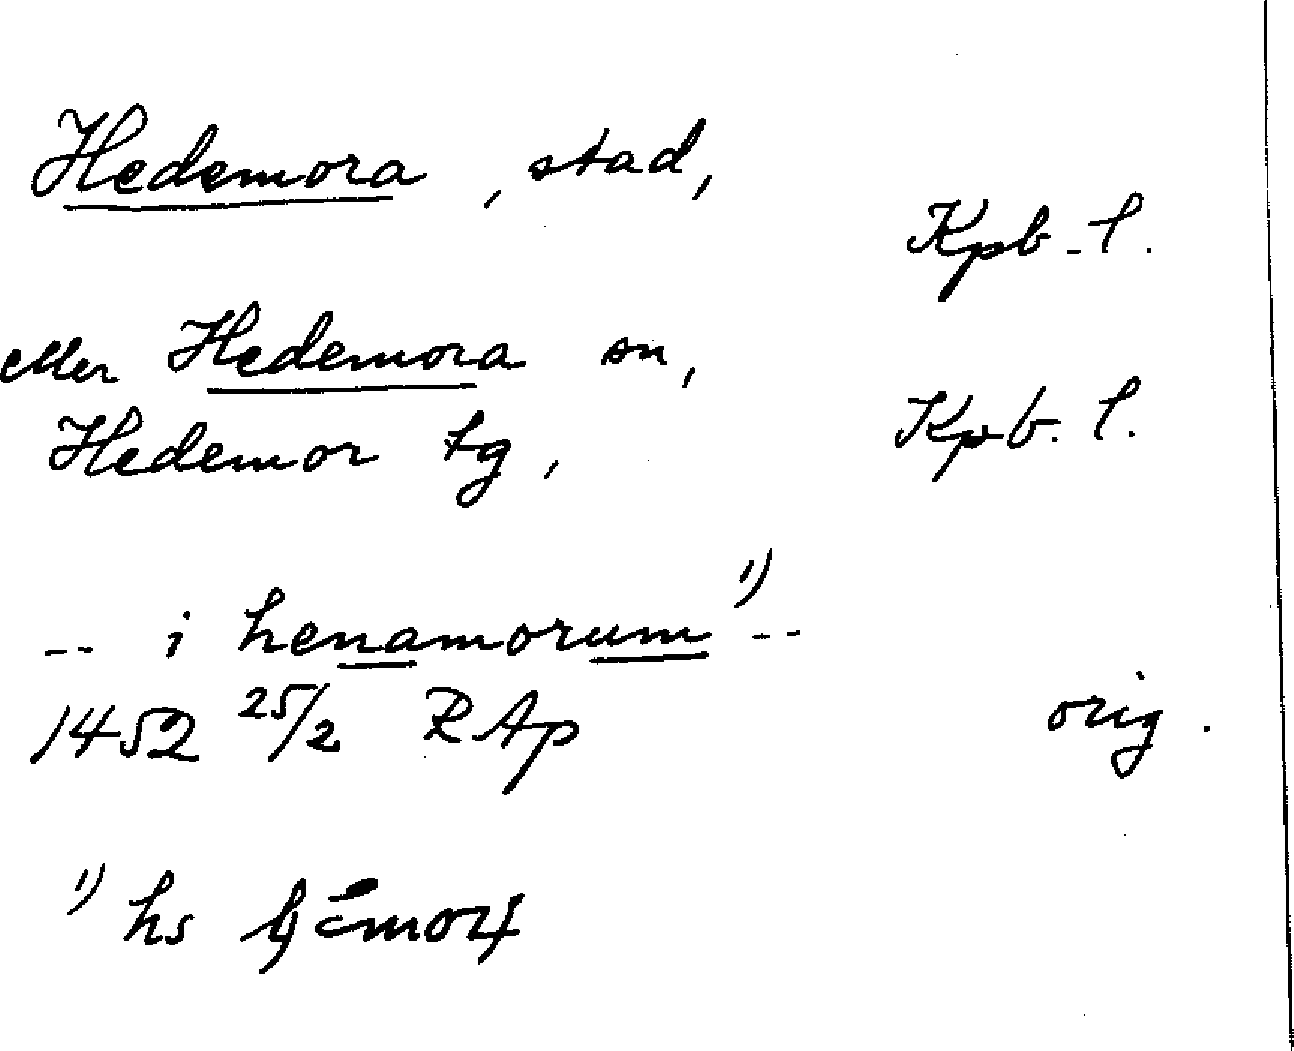 Hedemora, stad,
Kpb. l.
eller Hedemora sn,
Kpb. l.
Hedemor tg,
-- i henamorum ¹) --
1452 25/2 RAp orig.
¹) hs